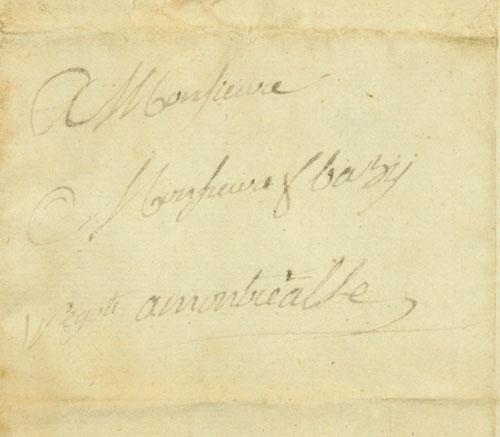 A Monsieure
Monsieure f bazy
Negotĩ a montréalle